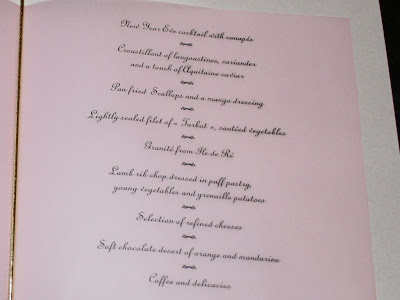 New Year Eve cocktail with canapés
Croustellant of langoustines, coriander
and a touch of Aquitaine caviar
Pan fried Scallops and a mango dressing
Lightly sealed filet of « Turbot », sautéed vegetables
Granité from Ile de Ré
Lamb rib chop dressed in puff pastry,
young vegetables and grenaille potatoes
Selection of refined cheeses
Soft chocolate desert of orange and mandarine
Coffee and delicacies